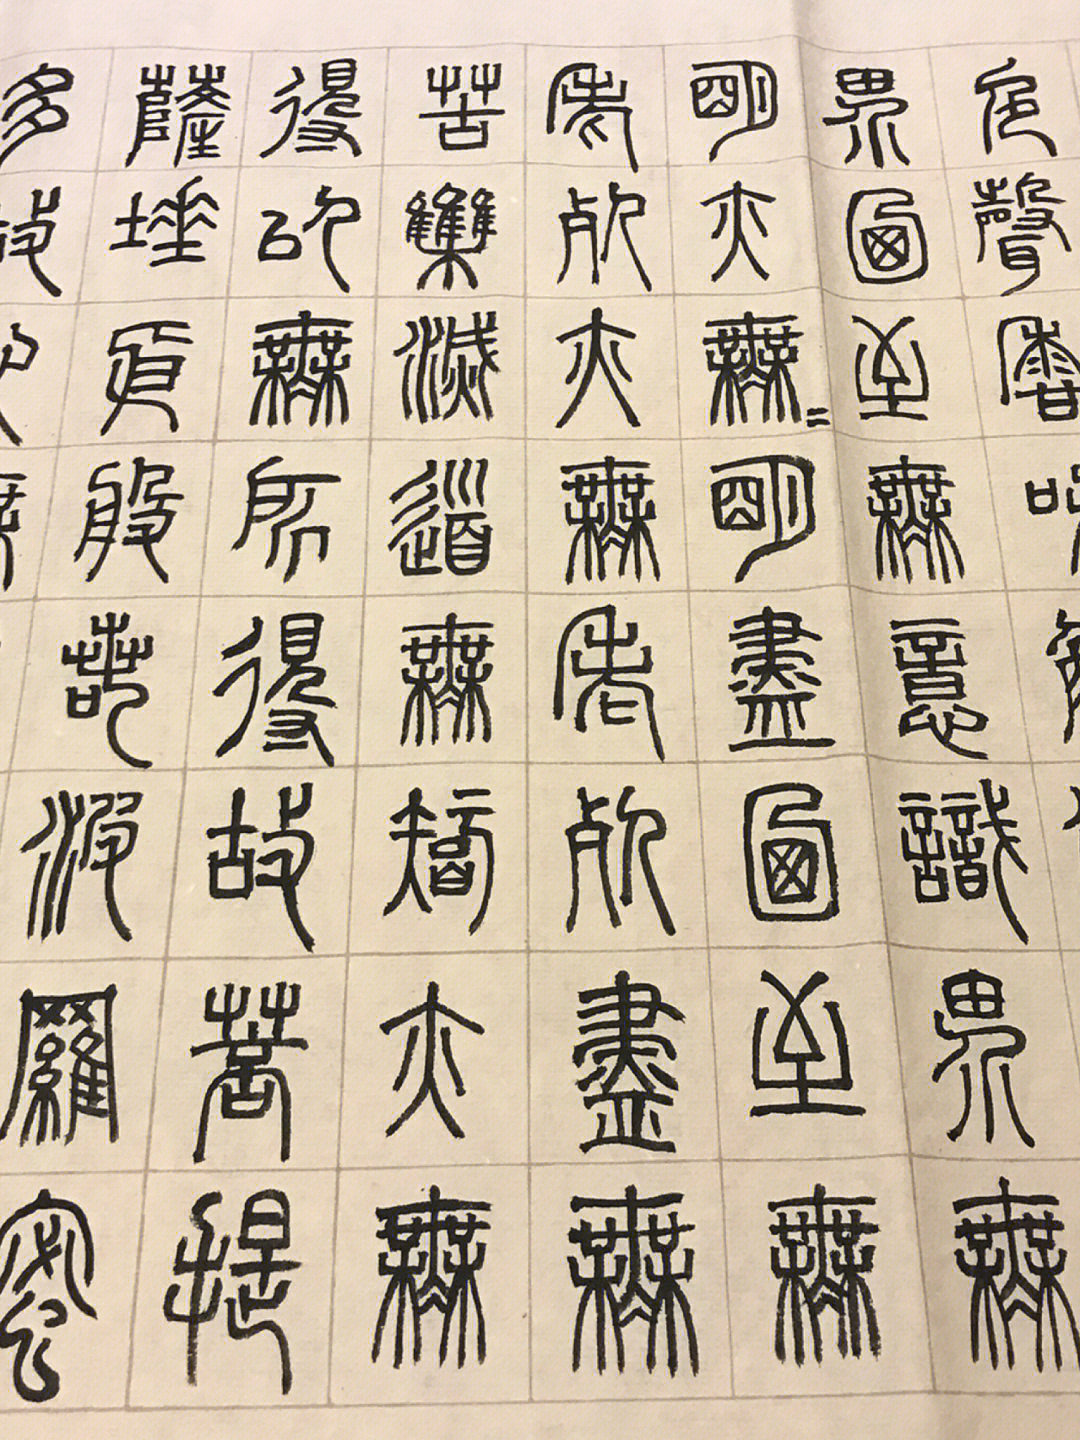 色聲香味觸
界乃至無意識界無
明亦無=明盡乃至無
老死亦無老死盡無
苦集滅道無智亦無
得以無所得故菩提
薩埵依般若波羅蜜
多故心無